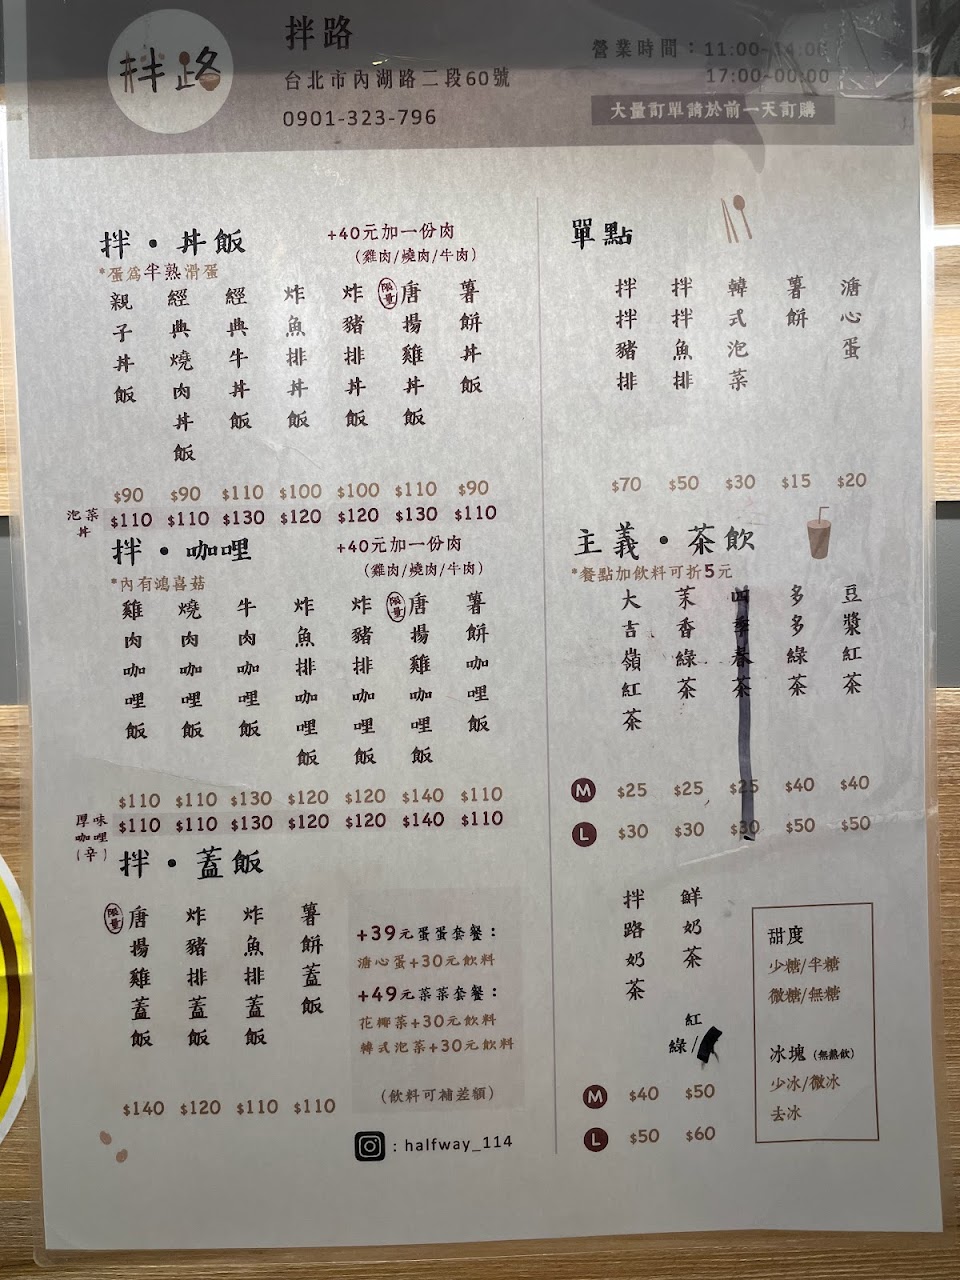 拌路
拌路
台北市內湖路二段60號
0901-323-796
營業時間：11:00-14:00
17:00-00:00
大量訂單請於前一天訂購
拌・丼飯
+40元加一份肉
(雞肉/燒肉/牛肉)
*蛋為半熟滑蛋
親子丼飯
經典燒肉丼飯
經典牛丼飯
炸魚排丼飯
炸豬排丼飯
限量 唐揚雞丼飯
薯餅丼飯
$90 $90 $110 $100 $100 $110 $90
泡菜丼 $110 $110 $130 $120 $120 $130 $110
拌・咖哩
+40元加一份肉
(雞肉/燒肉/牛肉)
*內有鴻喜菇
雞肉咖哩飯
燒肉咖哩飯
牛肉咖哩飯
炸魚排咖哩飯
炸豬排咖哩飯
限量 唐揚雞咖哩飯
薯餅咖哩飯
$110 $110 $130 $120 $120 $140 $110
厚味咖哩(辛) $110 $110 $130 $120 $120 $140 $110
拌・蓋飯
限量 唐揚雞蓋飯
炸豬排蓋飯
炸魚排蓋飯
薯餅蓋飯
$140 $120 $110 $110
+39元蛋蛋套餐：
溏心蛋+30元飲料
+49元菜菜套餐：
花椰菜+30元飲料
韓式泡菜+30元飲料
(飲料可補差額)
: halfway_114
單點
拌拌豬排
拌拌魚排
韓式泡菜
薯餅
溏心蛋
$70 $50 $30 $15 $20
主義・茶飲
*餐點加飲料可折5元
大吉嶺紅茶
茉香綠茶
四季春茶
多多綠茶
豆漿紅茶
M $25 $25 $25 $40 $40
L $30 $30 $30 $50 $50
拌路奶茶
鮮奶茶
紅
綠/
M $40 $50
L $50 $60
甜度
少糖/半糖
微糖/無糖
冰塊(無熱飲)
少冰/微冰
去冰